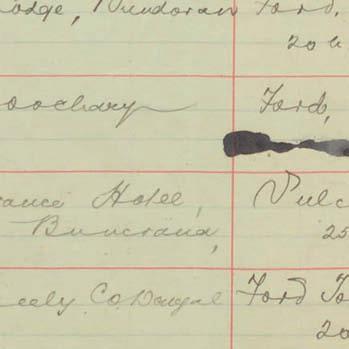 odge, Bundoran Ford,
20 h
oochary Ford,
rance Hotel, Vulc
Buncrana, 25
eely Co Donegal Ford To
20